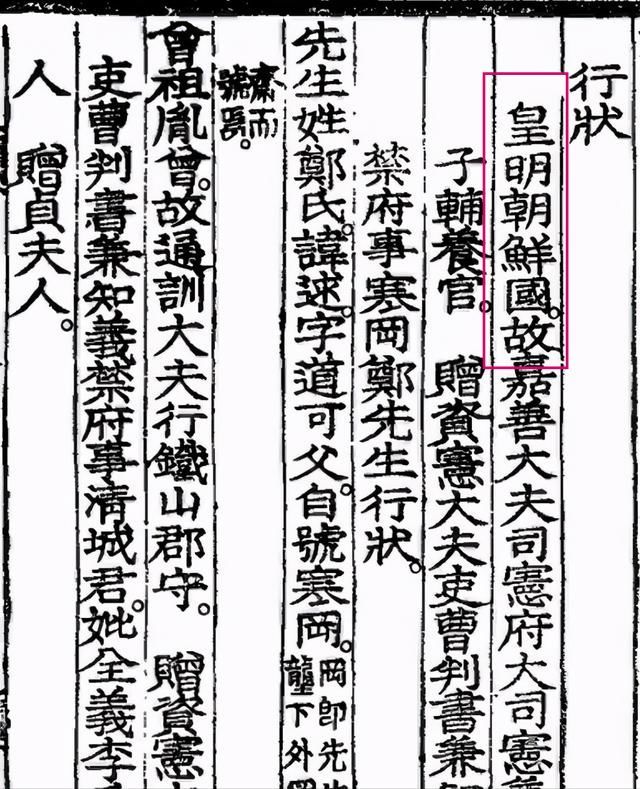 行狀
皇明朝鮮國。故嘉善大夫司憲府大司憲
子輔養官。　贈資憲大夫吏曹判書兼
禁府事寒岡鄭先生行狀。
先生姓鄭氏。諱逑。字道可父。自號寒岡。岡卽先
壟下外
齋而
號焉。
曾祖胤曾。故通訓大夫行鐵山郡守。　贈資憲
吏曹判書兼知義禁府事清城君。妣全義李
人　贈貞夫人。